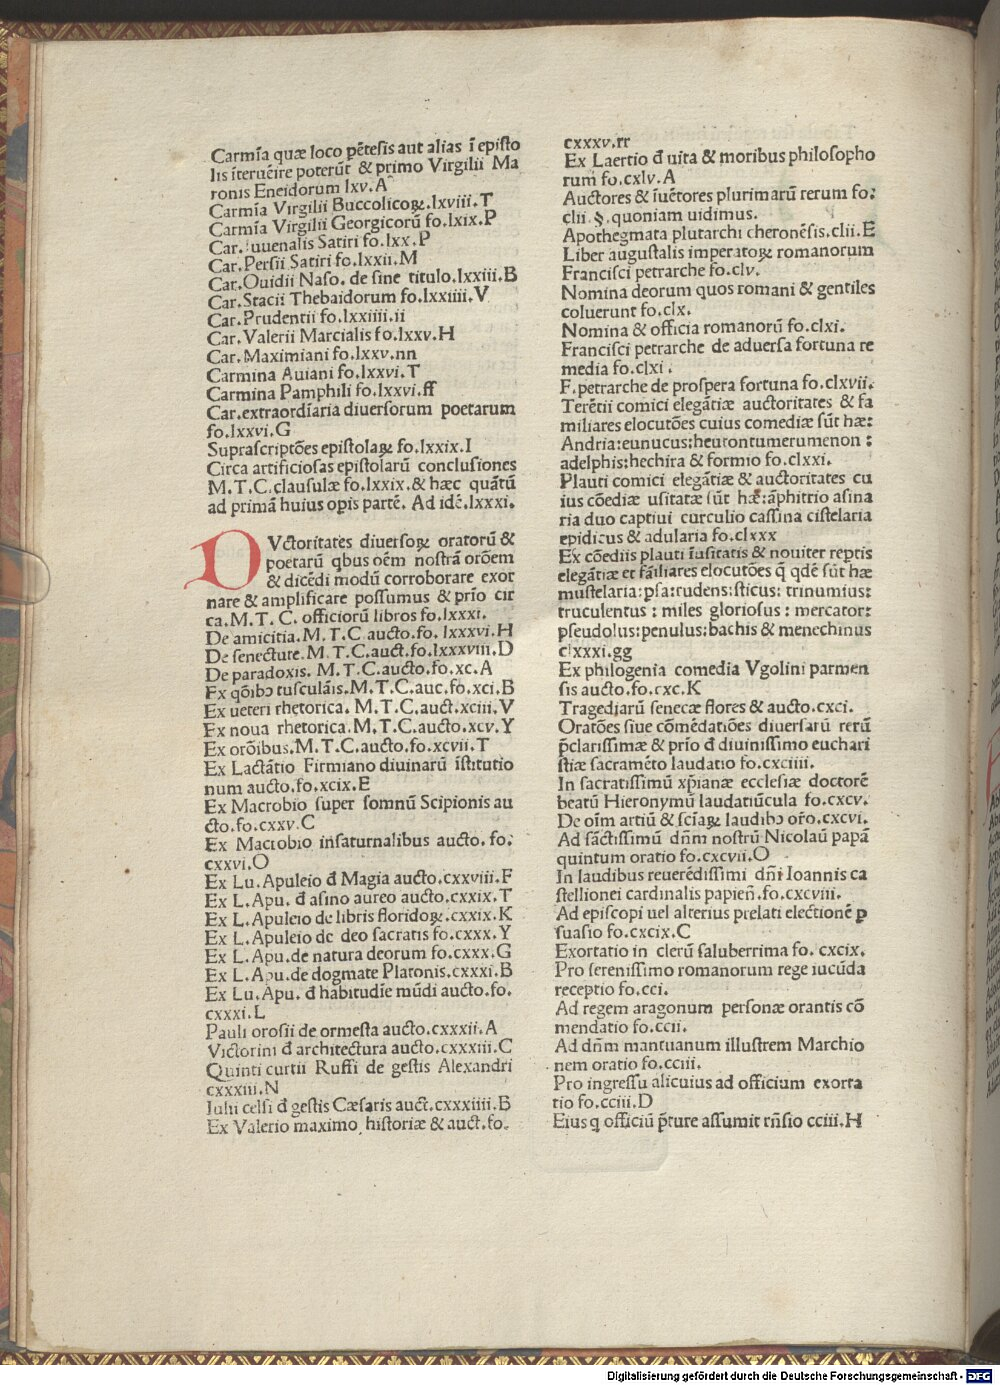 Carmĩa quæ loco pẽtesis aut alias ĩ episto
lis ĩteruẽire poterũt & primo Virgilii Ma
ronis Eneidorum lxv.A
Carmĩa Virgilii Buccolicoꝝ.lxviii.T
Carmĩa Virgilii Georgicorũ fo.lxix.P
Car.Iuuenalis Satiri fo.lxx.P
Car.Persii Satiri fo.lxxii.M
Car.Ouidii Naso. de sine titulo.lxxiii.B
Car.Stacii Thebaidorum fo.lxxiiii.V
Car.Prudentii fo.lxxiiii.ii
Car.Valerii Marcialis fo.lxxv.H
Car.Maximiani fo.lxxv.nn
Carmina Auiani fo.lxxvi.T
Carmina Pamphili fo.lxxvi.ff
Car.extraordĩaria diuersorum poetarum
fo.lxxvi.G
Suprascriptões epistolaꝝ fo.lxxix.I
Circa artificiosas epistolarũ conclusiones
M.T.C.clausulæ fo.lxxix.& hæc quãtũ
ad primã huius opis partẽ. Ad idẽ.lxxxi.
Vctoritates diuersoꝝ oratorũ &
poetarũ qbus oẽm nostrã orõem
& dicẽdi modũ corroborare exor
nare & amplificare possumus & prĩo cir
ca.M.T.C. officiorũ libros fo.lxxxi.
De amicitia.M.T.C aucto.fo.lxxxvi.H
De senecture.M.T.C.auct.fo.lxxxviii.D
De paradoxis. M.T.C.aucto.fo.xc.A
Ex qõibꝰ tusculãis.M.T.C.auc.fo.xci.B
Ex ueteri rhetorica. M.T.C.auct.xciii.V
Ex noua rhetorica.M.T.C.aucto.xcv.Y
Ex orõibus.M.T.C.aucto.fo.xcvii.T
Ex Lactãtio Firmiano diuinarũ ĩstitutio
num aucto.fo.xcix.E
Ex Macrobio super somnũ Scipionis au
cto.fo.cxxv.C
Ex Mactobio insaturnalibus aucto. fo.
cxxvi.O
Ex Lu.Apuleio đ Magia aucto.cxxviii.F
Ex L.Apu. đ asino aureo aucto.cxxix.T
Ex L.Apuleio de libris floridoꝝ.cxxix.K
Ex L.Apuleio de deo sacratis fo.cxxx.Y
Ex L.Apu.de natura deorum fo.cxxx.G
Ex L.Apu.de dogmate Platonis.cxxxi.B
Ex Lu.Apu. đ habitudĩe mũdi aucto.fo.
cxxxi.L
Pauli orosii de ormesta aucto.cxxxii.A
Victorini đ architectura aucto.cxxxiii.C
Quinti curtii Ruffi de gestis Alexandri
cxxxiii.N
Iulii celsi đ gestis Cæsaris auct.cxxxiiii.B
Ex Valerio maximo historiæ & auct.fo.
cxxxv.rr
Ex Laertio đ uita & moribus philosopho
rum fo.cxlv.A
Auctores & ĩuẽtores plurimarũ rerum fo.
clii .§.quoniam uidimus.
Apothegmata plutarchi cheronẽsis.clii.E
Liber augustalis imperatoꝝ romanorum
Francisci petrarche fo.clv.
Nomina deorum quos romani & gentiles
coluerunt fo.clx.
Nomina & officia romanorũ fo.clxi.
Francisci petrarche de aduersa fortuna re
media fo.clxi.
F.petrarche de prospera fortuna fo.clxvii.
Terẽtii comici elegãtiæ auctoritates & fa
miliares elocutões cuius comediæ sũt hæ:
Andria:eunucus:heutontumerumenon :
adelphis:hechira & formio fo.clxxi.
Plauti comici elegãtiæ & auctoritates cu
ius cõediæ usitatæ sũt hæ:ãphitrio asina
ria duo captiui curculio cassina cistelaria
epidicus & adularia fo.clxxx
Ex cõediis plauti ĩusitatis & nouiter reptis
elegãtiæ et fãiliares elocutões q̃ qdẽ sũt hæ
mustelaria:psa:rudens:sticus: trinumius:
truculentus : miles gloriosus : mercator:
pseudolus:penulus:bachis & menechinus
clxxxi.gg
Ex philogenia comedia Vgolini parmen
sis aucto.fo.cxc.K
Tragediarũ senecæ flores & aucto.cxci.
Oratões siue cõmẽdatiões diuersarũ rerũ
p̃clarissimæ & prĩo đ diuinissimo euchari
stiæ sacramẽto laudatio fo.cxciiii.
In sacratissimũ xp̃ianæ ecclesiæ doctorẽ
beatũ Hieronymũ laudatiũcula fo.cxcv.
De oĩm artiũ & scĩaꝝ laudibꝰ or̃o.cxcvi.
Ad sãctissimũ dñm nostrũ Nicolaũ papã
quintum oratio fo.cxcvii.O
In laudibus reuerẽdissimi dñi Ioannis ca
stellionei cardinalis papieñ.fo.cxcviii.
Ad episcopi uel alterius prelati electionẽ ꝑ
suasio fo.cxcix.C
Exortatio in clerũ saluberrima fo. cxcix.
Pro serenissimo romanorum rege iucũda
receptio fo.cci.
Ad regem aragonum personæ orantis cõ
mendatio fo.ccii.
Ad dñm mantuanum illustrem Marchio
nem oratio fo.cciii.
Pro ingressu alicuius ad officium exorta
tio fo.cciii.D
Eius q officiũ p̃ture assumit rñsio cciii.H
Digitalisierung gefördert durch die Deutsche Forschungsgemeinschaft - DFG